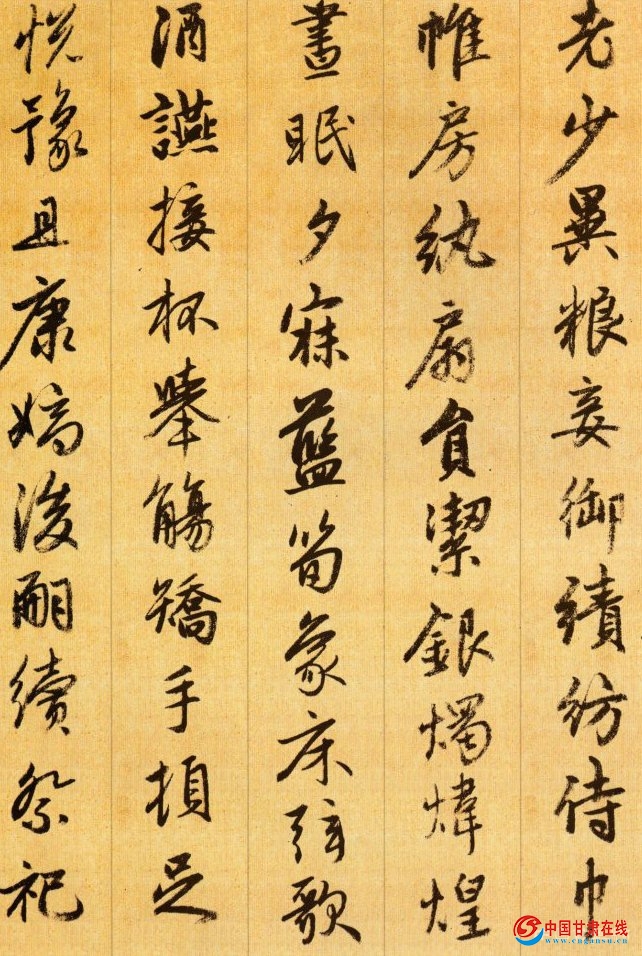 老少異粮妾御績紡侍巾
帷房紈扇員潔銀燭煒煌
晝眠夕寐藍筍象床弦歌
酒讌接杯舉觴矯手頓足
悅豫且康嫡後嗣續祭祀
中国甘肃在线
www.cngansu.cn